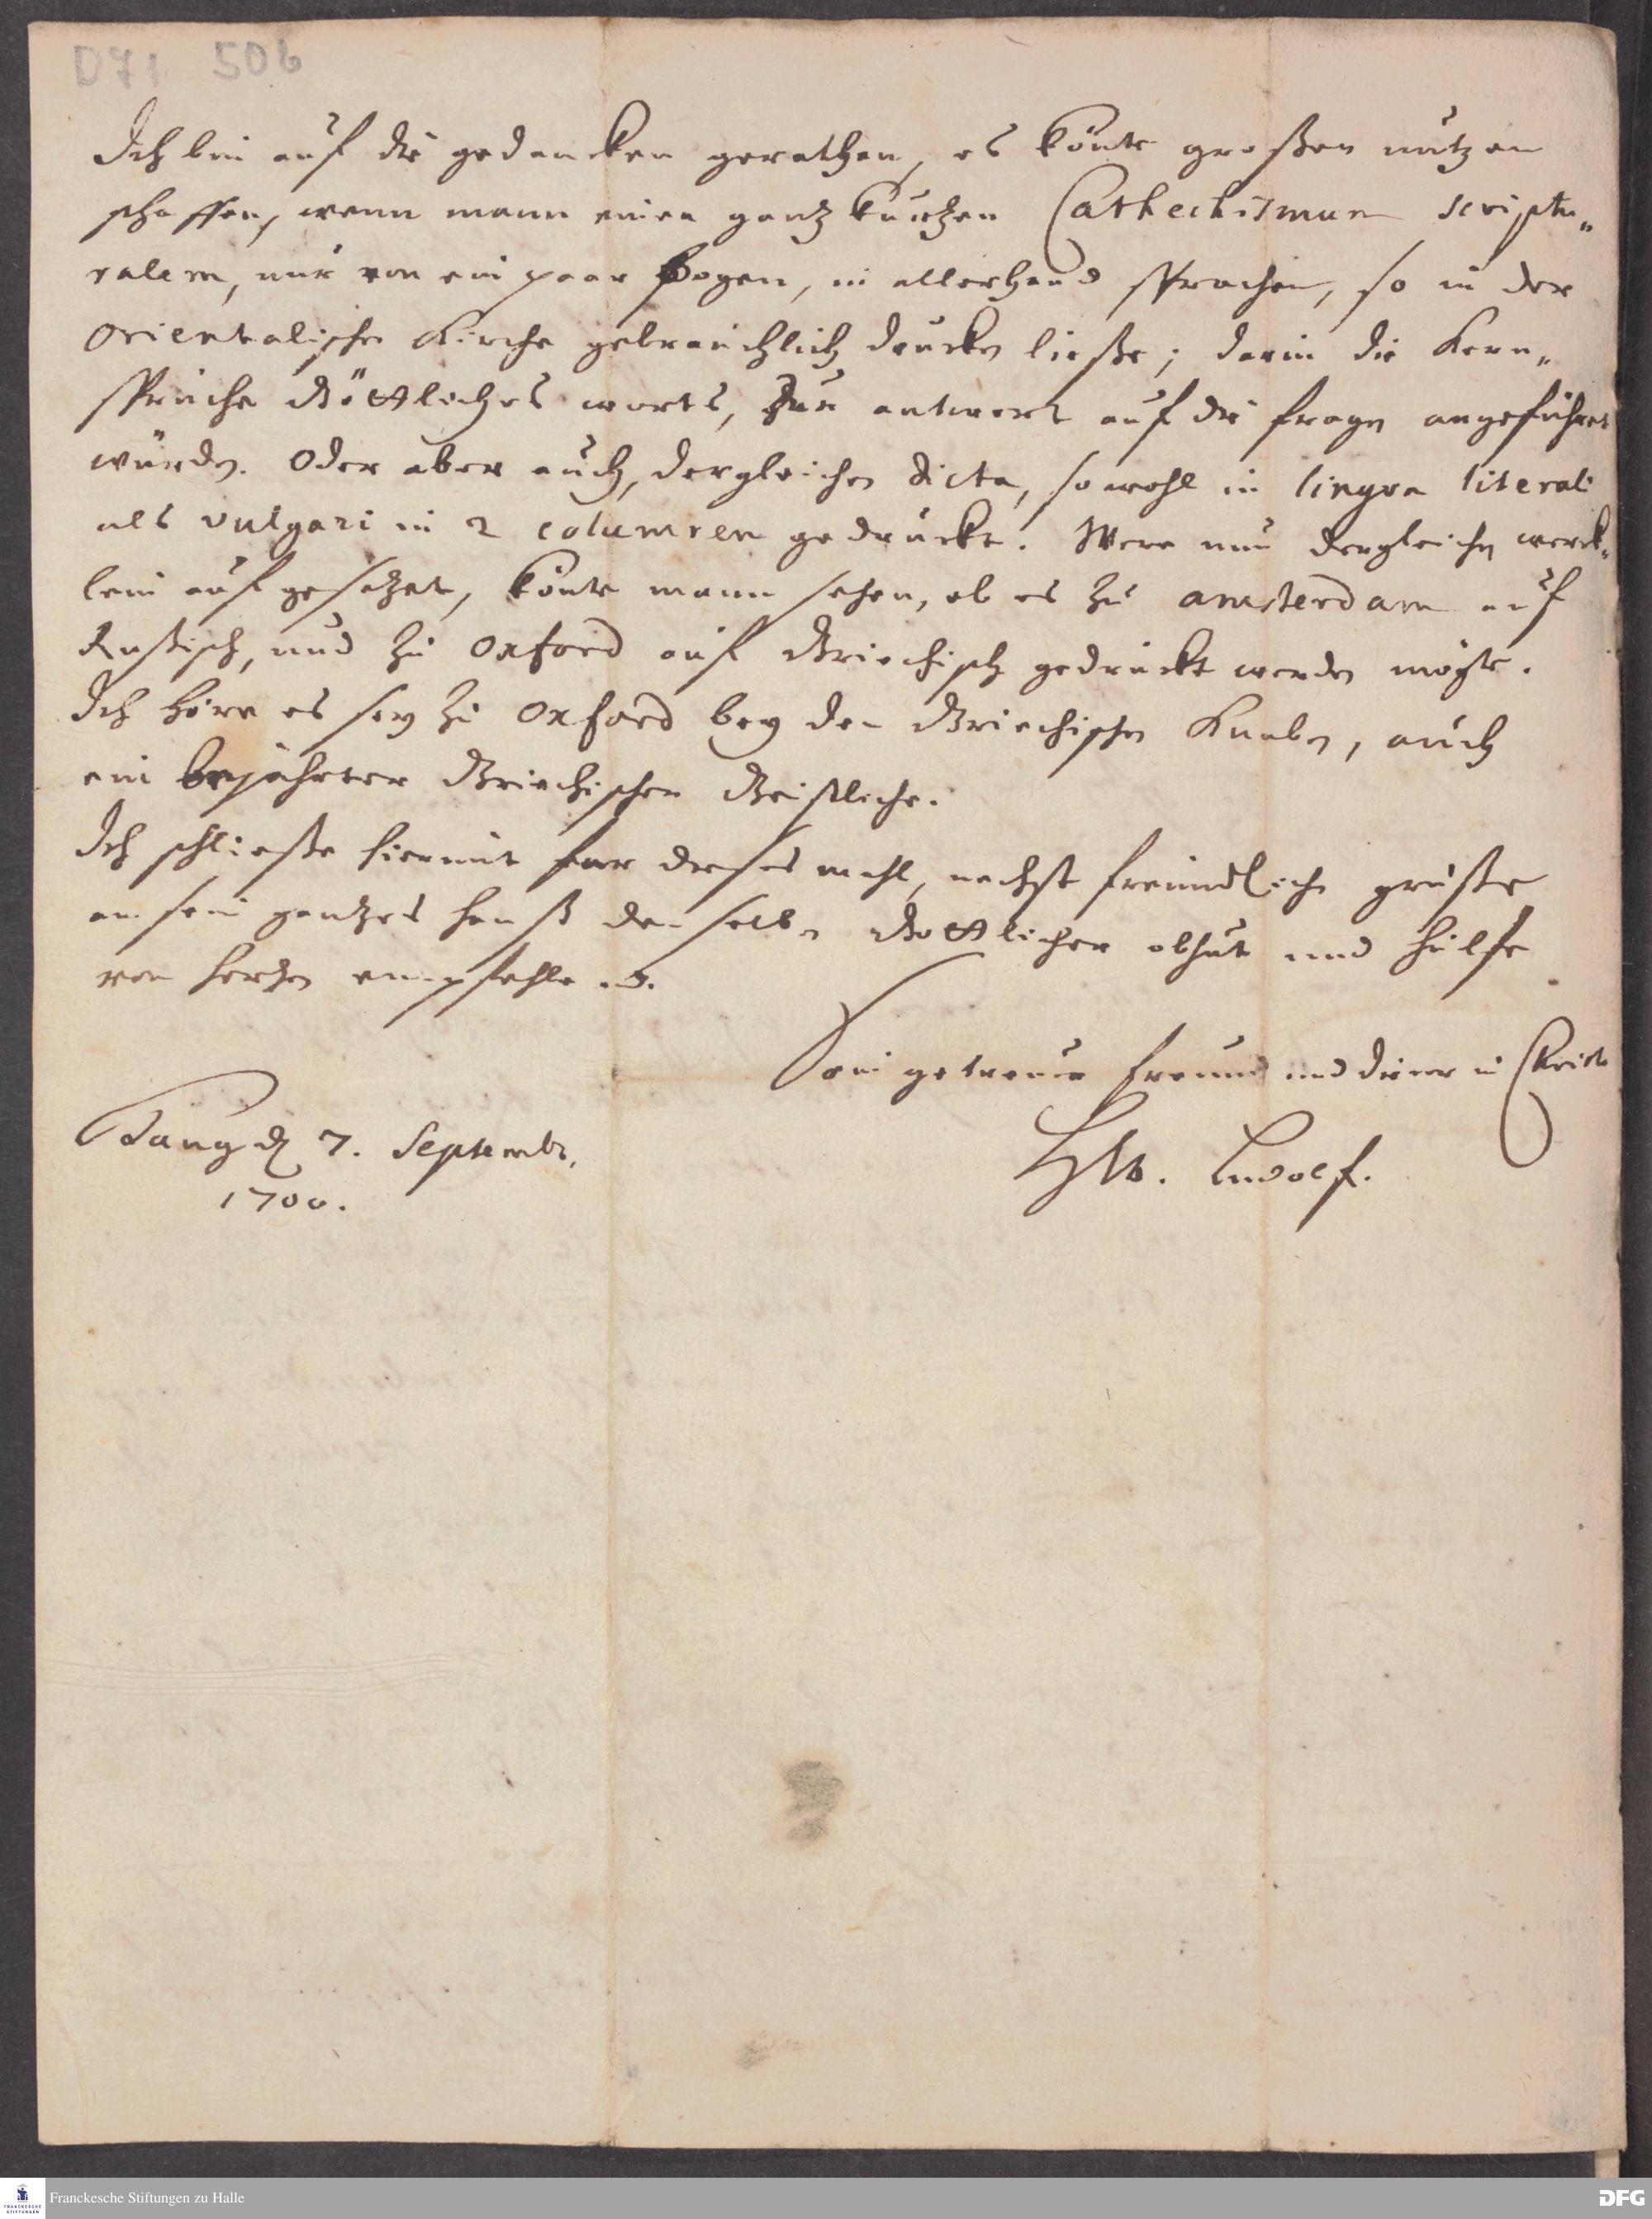 D71 506
Ich bin auf die gedancken gerathen, es könte großen nutzen
schaffen, wenn mann einen gantz kurtzen Cathechismum scriptu„
ralem, nur von ein paar bogen, in allerhand sprachen, so in der
Orientalischen Kirche gebräuchlich drucken ließe; darin die Kern„
sprüche Göttliches worts, zur antwort auf die fragen angeführet
würden. Oder aber auch, dergleichen dicta, so wohl in lingva literali
als vulgari in 2 columnen gedruckt. Were nun dergleichen werck„
lein aufgesetzet, könte mann sehen, ob es zu amsterdam auf
Rußisch, und zu Oxford auf Griechisch gedruckt werden mögte.
Ich höre es sey zu Oxford bey den Griechischen Knaben, auch
ein bejahrter Griechischer Geistliche.
Ich schließe hiermit für dieses mahl, nechst freundlichen grüßen
an sein gantzes hauß denselben Göttlicher obhut und hülfe
von hertzen empfehlend.
Sein getreuer freund und diener in Christo
7. Septembr.
1700.
HW. Ludolf.
Franckesche Stiftungen zu Halle
DFG